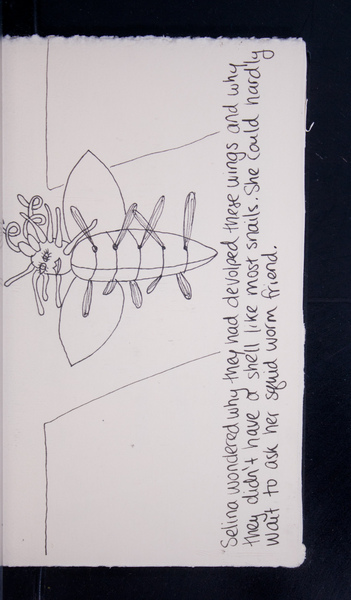 Selina wondered why they had devolped these wings and why
they didn't have a shell like most snails. She could hardly
wait to ask her squid worm friend.